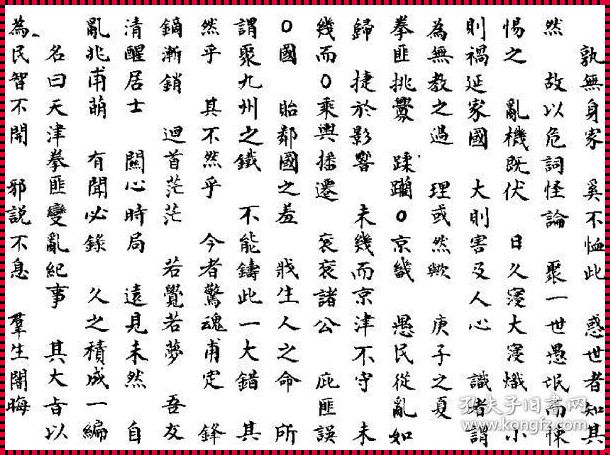 孰無身家　奚不恤此　惑世者知其
然　故以危詞怪論　聚一世愚氓而悚
惕之　亂機既伏　日久寖大寖熾　小
則禍延家國　大則害及人心　識者謂
為無教之過　理或然歟　庚子之夏
拳匪挑釁　蹂躪○京畿　愚民從亂如
歸　捷於影響　未幾而京津不守　未
幾而○乘輿播遷　袞袞諸公　庇匪誤
○國　貽鄰國之羞　戕生人之命　所
謂聚九州之鐵　不能鑄此一大錯　其
然乎　其不然乎　今者驚魂甫定　鋒
鏑漸銷　迴首茫茫　若覺若夢　吾友
清醒居士　關心時局　遠見未然　自
亂兆甫萌　有聞必錄　久之積成一編
名曰天津拳匪變亂紀事　其大旨以
為民智不開　邪說不息　羣生闇晦
孔夫子旧书网
www.kongfz.com